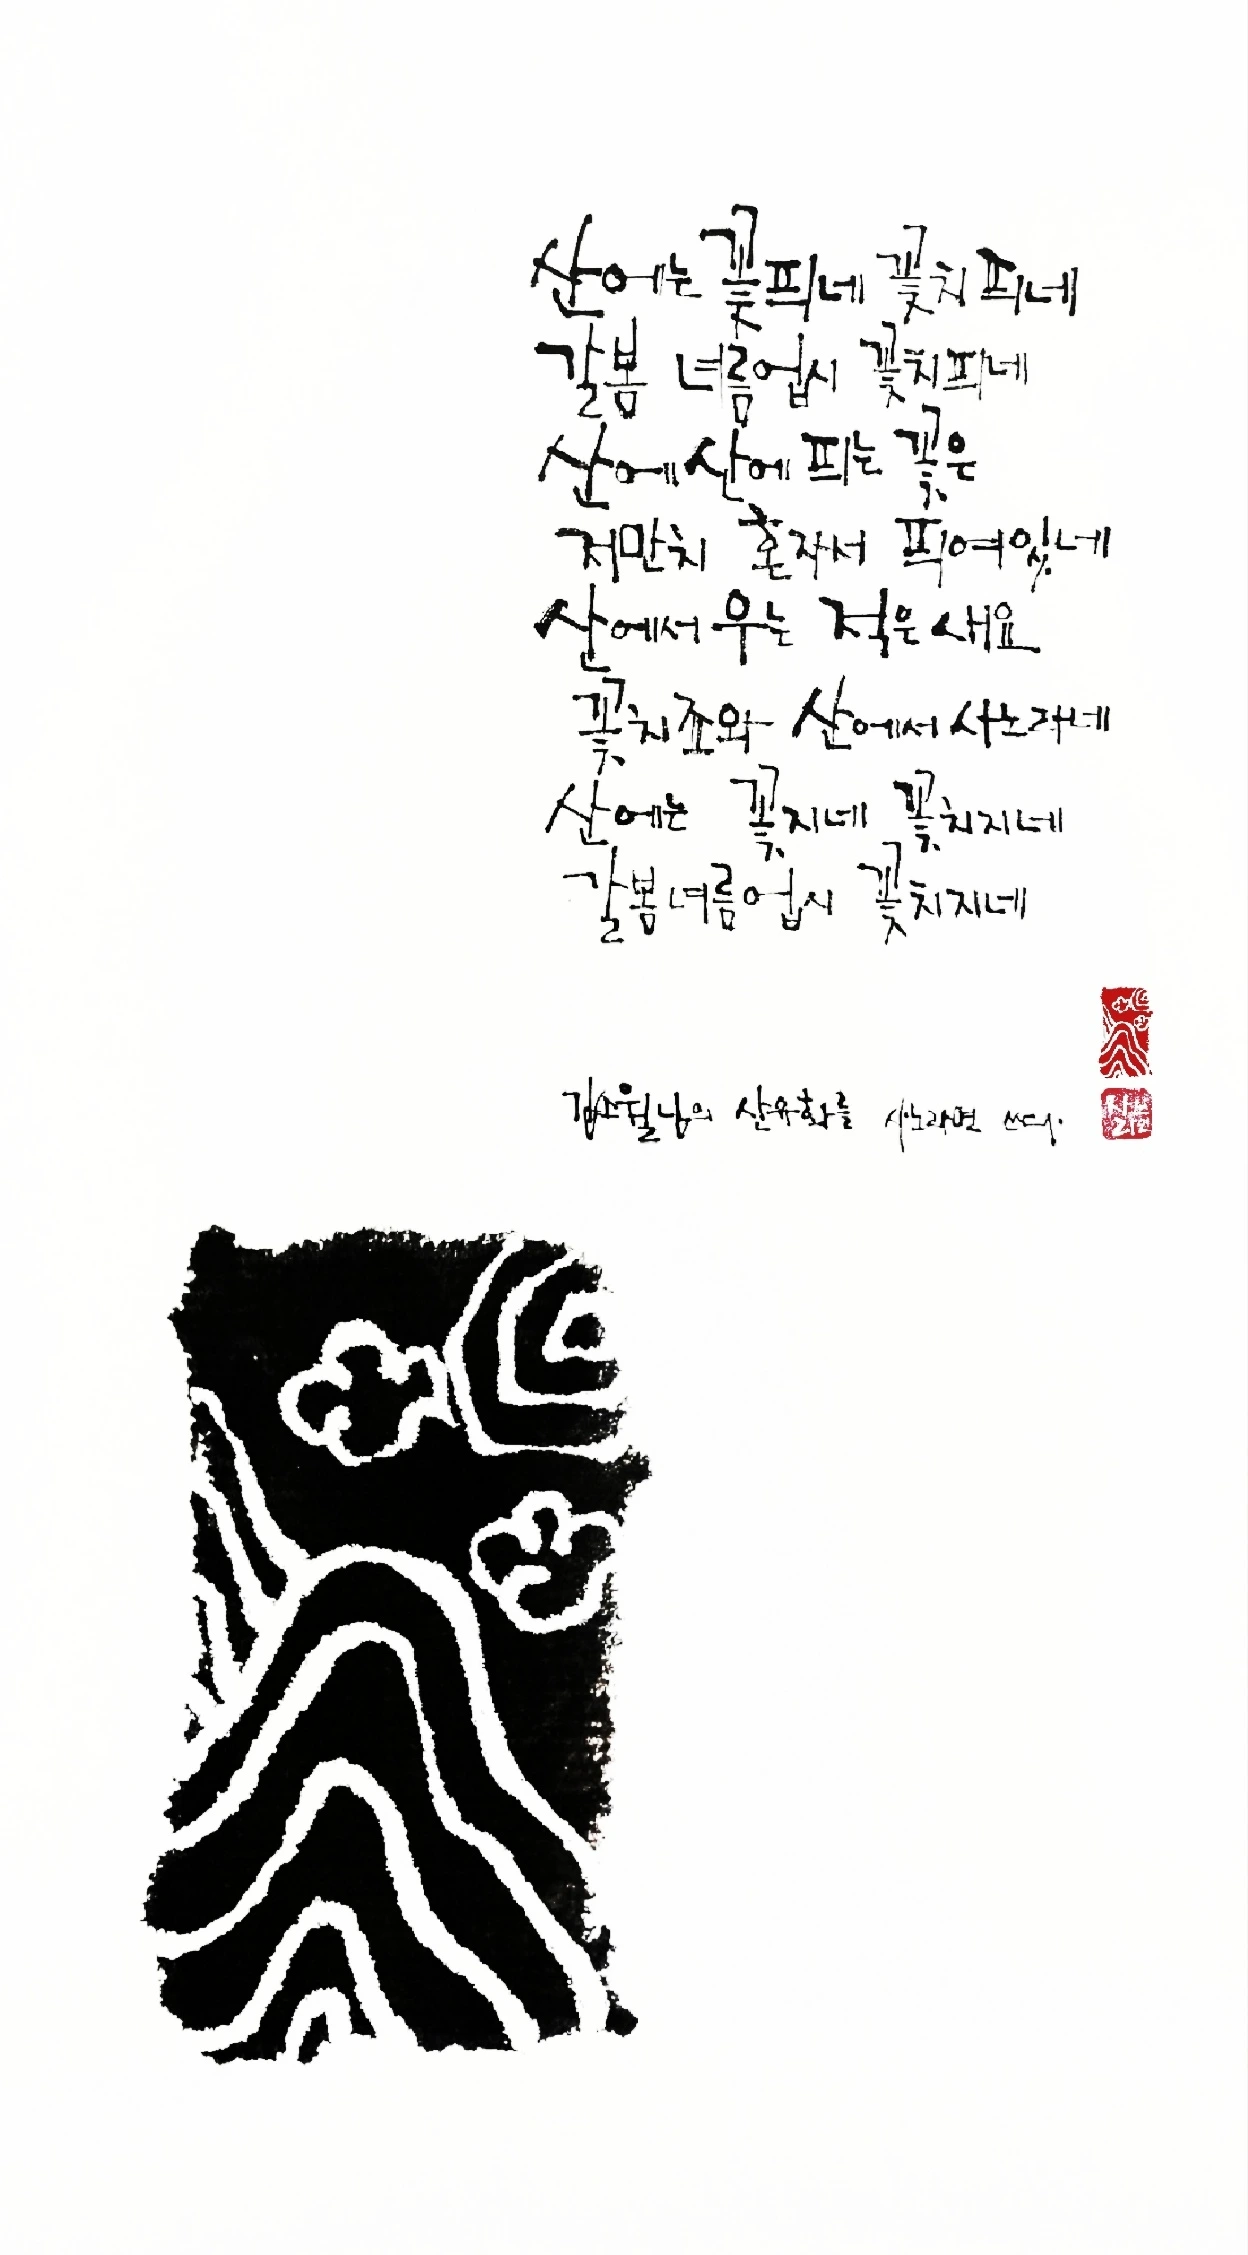 산에는 꽃픠네 꽃치 픠네
갈봄 녀름업시 꽃치픠네
산에 산에 픠는 꽃은
저만치 혼자서 픠여잇네
산에서 우는 적은 새요
꽃치죠와 산에서 사노라네
산에는 꽃지네 꽃치지네
갈봄녀름업시 꽃치지네
김소월님의 산유화를 사노라면 쓰다.